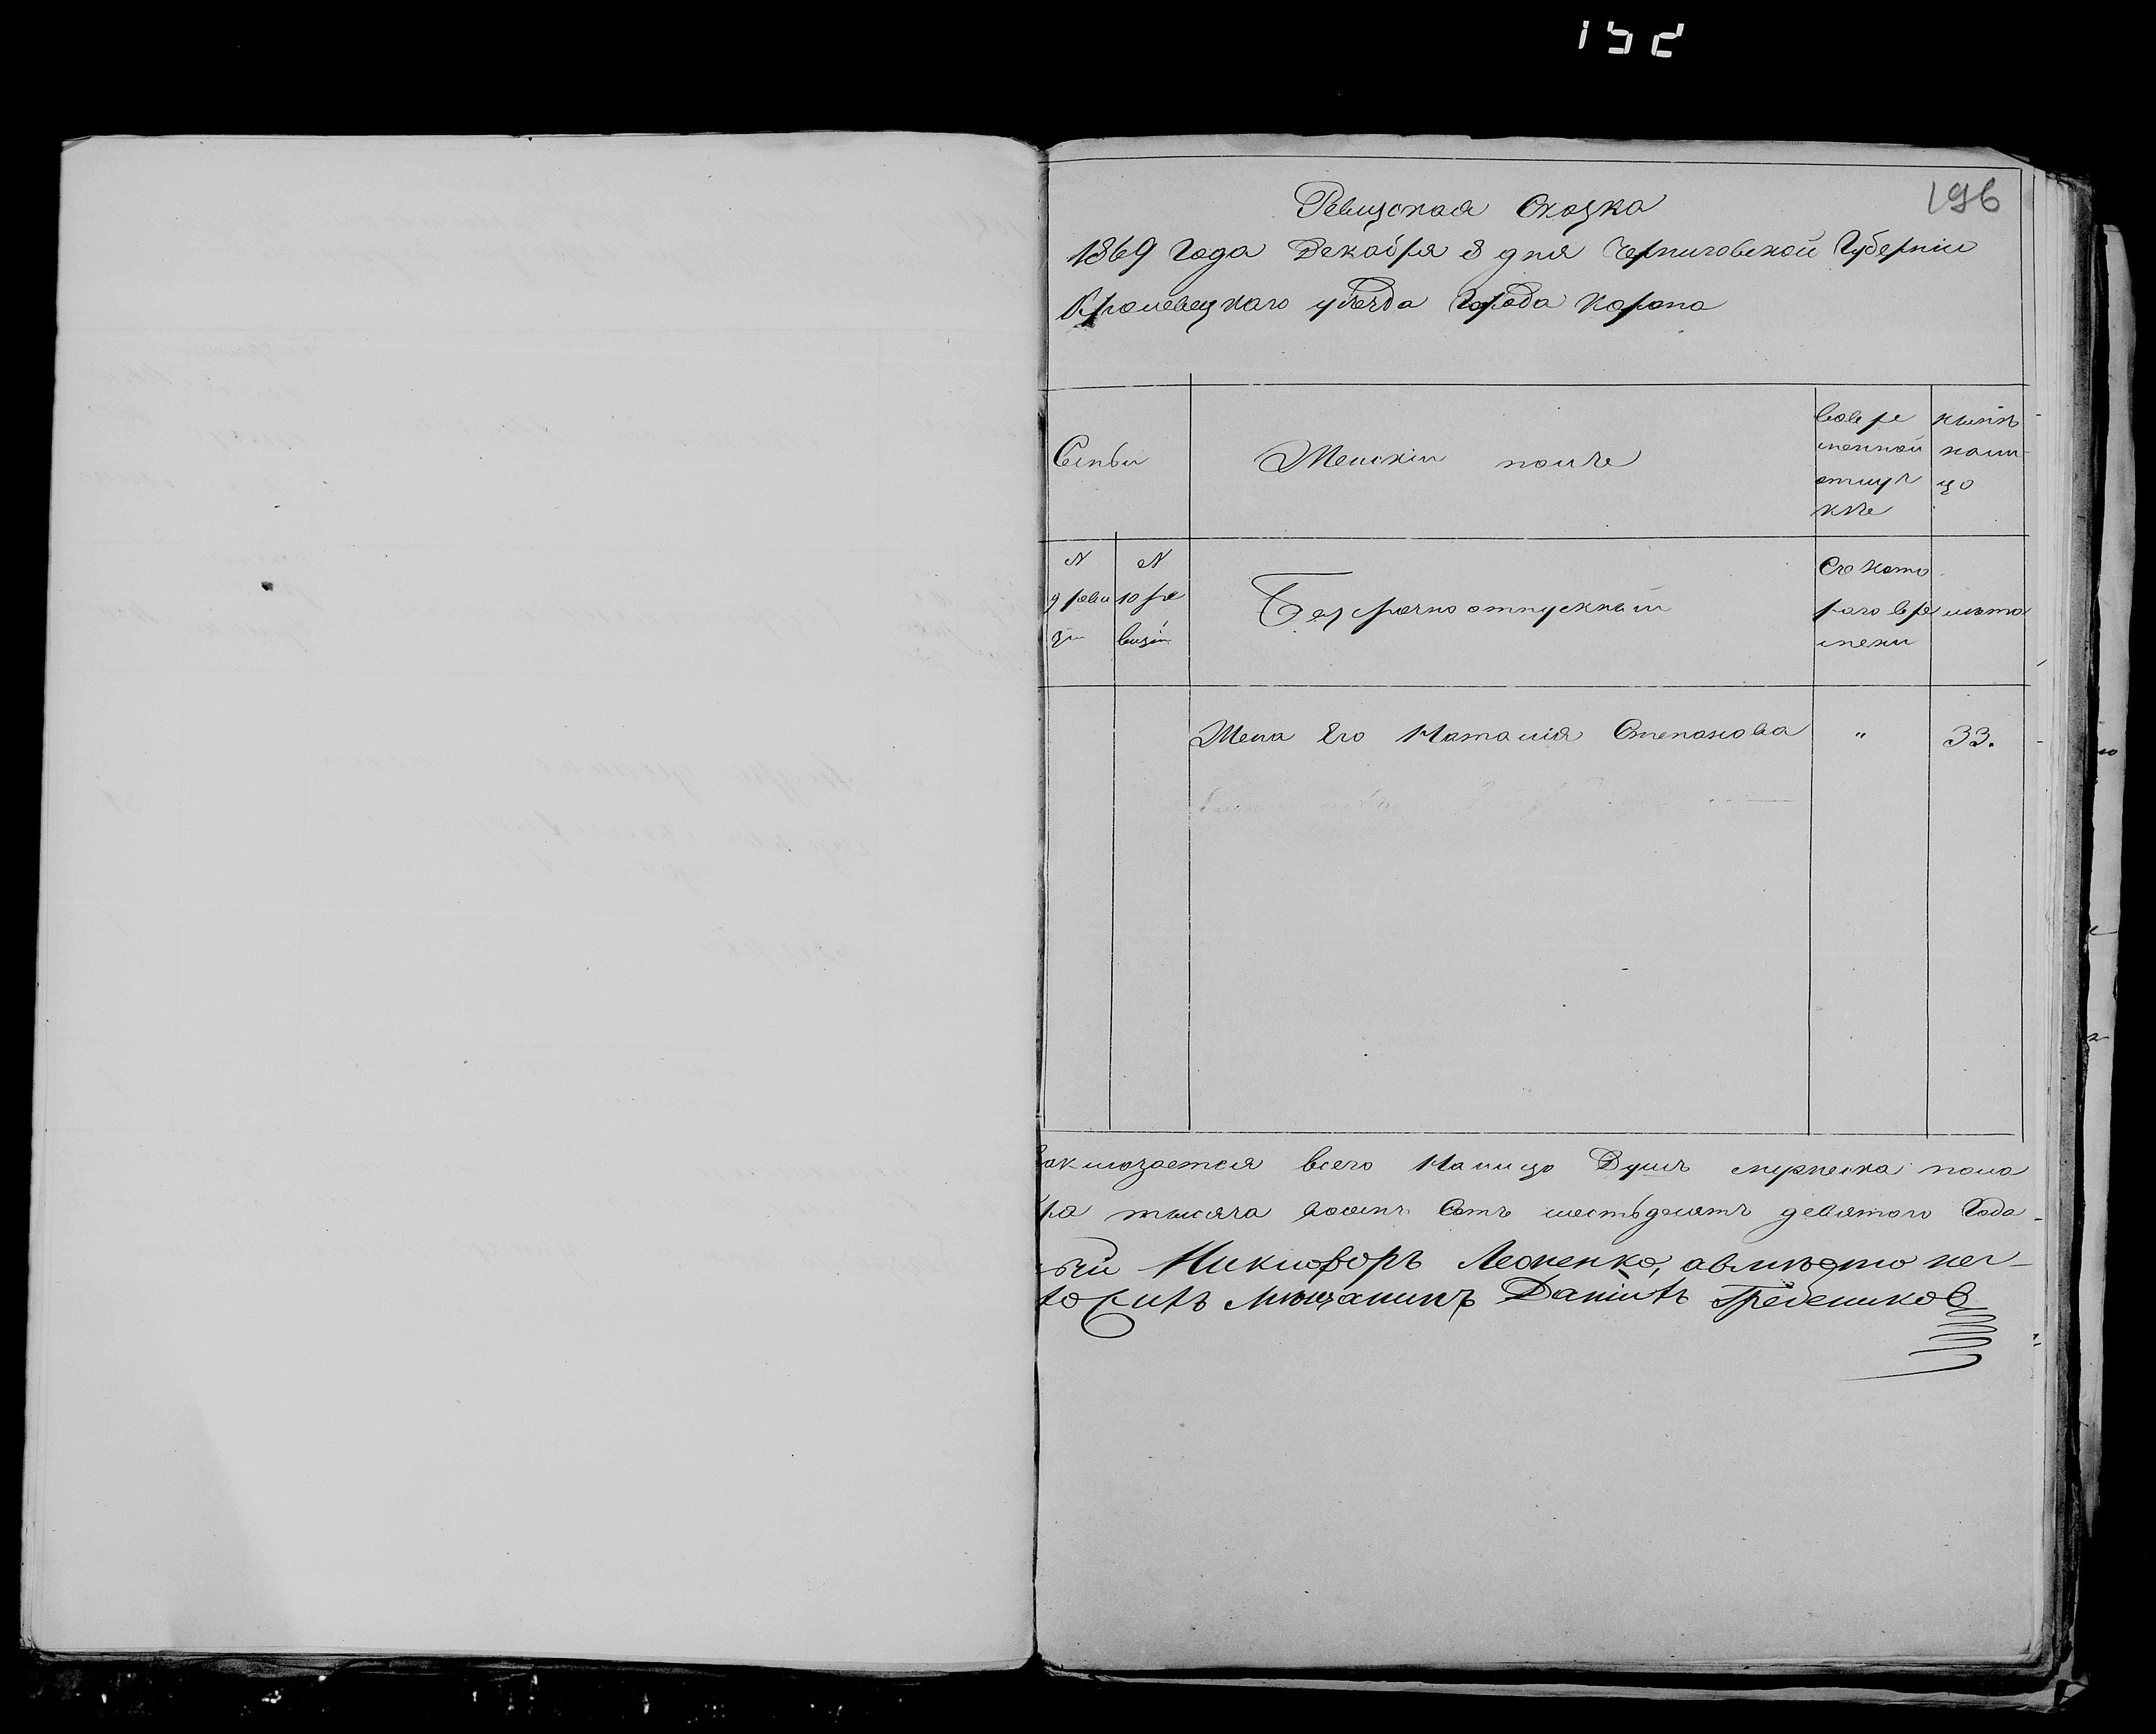 152
196
Ревизская Сказка
1869 Года Декабря 8 дня Черниговской Губерніи
Кролевецкаго уѣзда Города Коропа
Семьи
Женскій полъ
Вовре
менной
отлуч
кѣ
нынѣ
нали
цо
N
9 реви
зіи
N
10 ре
визіи
Безсрочно отпускный
Съ кото
раго вре
мени
лѣта
Жена Его Наталія Степанова " 33.
заключается всего Налицо Душъ мужеска пола
тысяча восемь Сотъ шестьдесятъ девятого Года
Никифоръ Леоненко, авмѣсто нег
мѣщанинъ Данилъ Гребениковъ